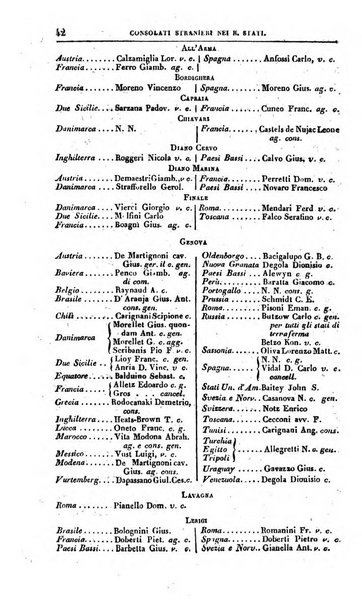 42 CONSOLATI STRANIERI NEI R. STATI.
ALL'ARMA
Austria - Calzamiglia Lor. v. c. Spagna - Anfossi Carlo, v. c.
Francia - Ferro Giamb. ag. c.
BORDIGHERA
Francia - Moreno Vincenzo Spagna - Moreno Gius. ag. c.
CAPRAIA
Due Sicilie - Sarzana Padov. v. c. Francia - Cuneo Franc. ag. c.
CHIAVARI
Danimarca - N. N. Francia - Castels de Nujac Leone
ag. cons.
DIANO CERVO
Inghilterra - Roggeri Nicola v. c. Paesi Bassi - Calvo Gius. v. c.
DIANO MARINA
Austria - Demaestri Giamb. v. c. Francia - Perretti Dom. v. c.
Danimarca - Strafforello Gerol. Paesi Bassi - Novaro Francesco
FINALE
Danimarca - Vierci Giorgio v. c. Roma - Mendari Ferd v. c.
Due Sicilie - Mifini Carlo Toscana - Falco Serafino v. c.
Francia - Boagni Gius. ag. c.
GENOVA
Austria - De Martignoni cav.
Gius. ger. il c. gen.
Baviera - Penco Giamb. ag.
di com.
Belgio - Raynaud A. c.
Brasile - D' Arauja Gius. Ant.
cons. gen.
Chilì - Carignani Scipione c.
Danimarca Morellet Gius. quondam
Ant. cons. gen.
Morellet G. ag. c.
Scribanis Pio F v. c.
Due Sicilie - Lioy Franc. c. gen.
Anria D. Vinc. v. c.
Equatore - Balduino Sebast. c.
Francia - Alletz Edoardo c. g.
Gros . . cancell.
Grecia - Rodocanaki Demetrio,
c. gen.
Inghilterra - Heats-Brown T. c.
Lucca - Oneto Franc. c. g.
Marocco - Vita Modona Abrah.
ag. c. gen.
Messico - Vust Luigi, v. c.
Modena - De Martignoni cav.
Gius. c. gen.
Vurtemberg - Dapassano Giul. Ces. c.
Oldenborgo - Bacigalupo G. B. c.
Nuova Granata Degola Dionisio c.
Paesi Bassi - Alewyn c. g.
Perù - Baratta Giacomo c.
Portogallo - N. N. c. g.
Prussia - Schmidt C. E.
Roma - Pisoni Eman. c. g.
Russia - Butzow Carlo c. gen.
per tutti gli stati di
terraferma
Betzo Kon. v. c.
Sassonia - Oliva Lorenzo Matt. c.
Spagna - N. N. cons.
Vidal D. Carlo v. c.
cancell.
Stati Un. d'Am. Baitey John S.
Svezia e Nor. - Casanova N. c. gen.
Svizzera - Notz Enrico
Toscana - Cecconi avv. c. gen.
Tunisi - Carignani Ant. c. g.
Turchia
Egitto Allegretti N. a. c. gen.
Tripoli
Uraguay - Gavazzo Gius. c.
Venezuela - Degola Dionisio c.
LAVAGNA
Roma - Pianello Dom. v. c.
LERICI
Brasile - Bolognini Gius. Roma - Romanini Fr. v. c.
Francia - Doberti Gius. v. c. Spagna - Doberti Pietro v. c.
Paesi Bassi - Barbetta Gius. v. c. Svezia e Norv. - Gianella Ant. v. c.